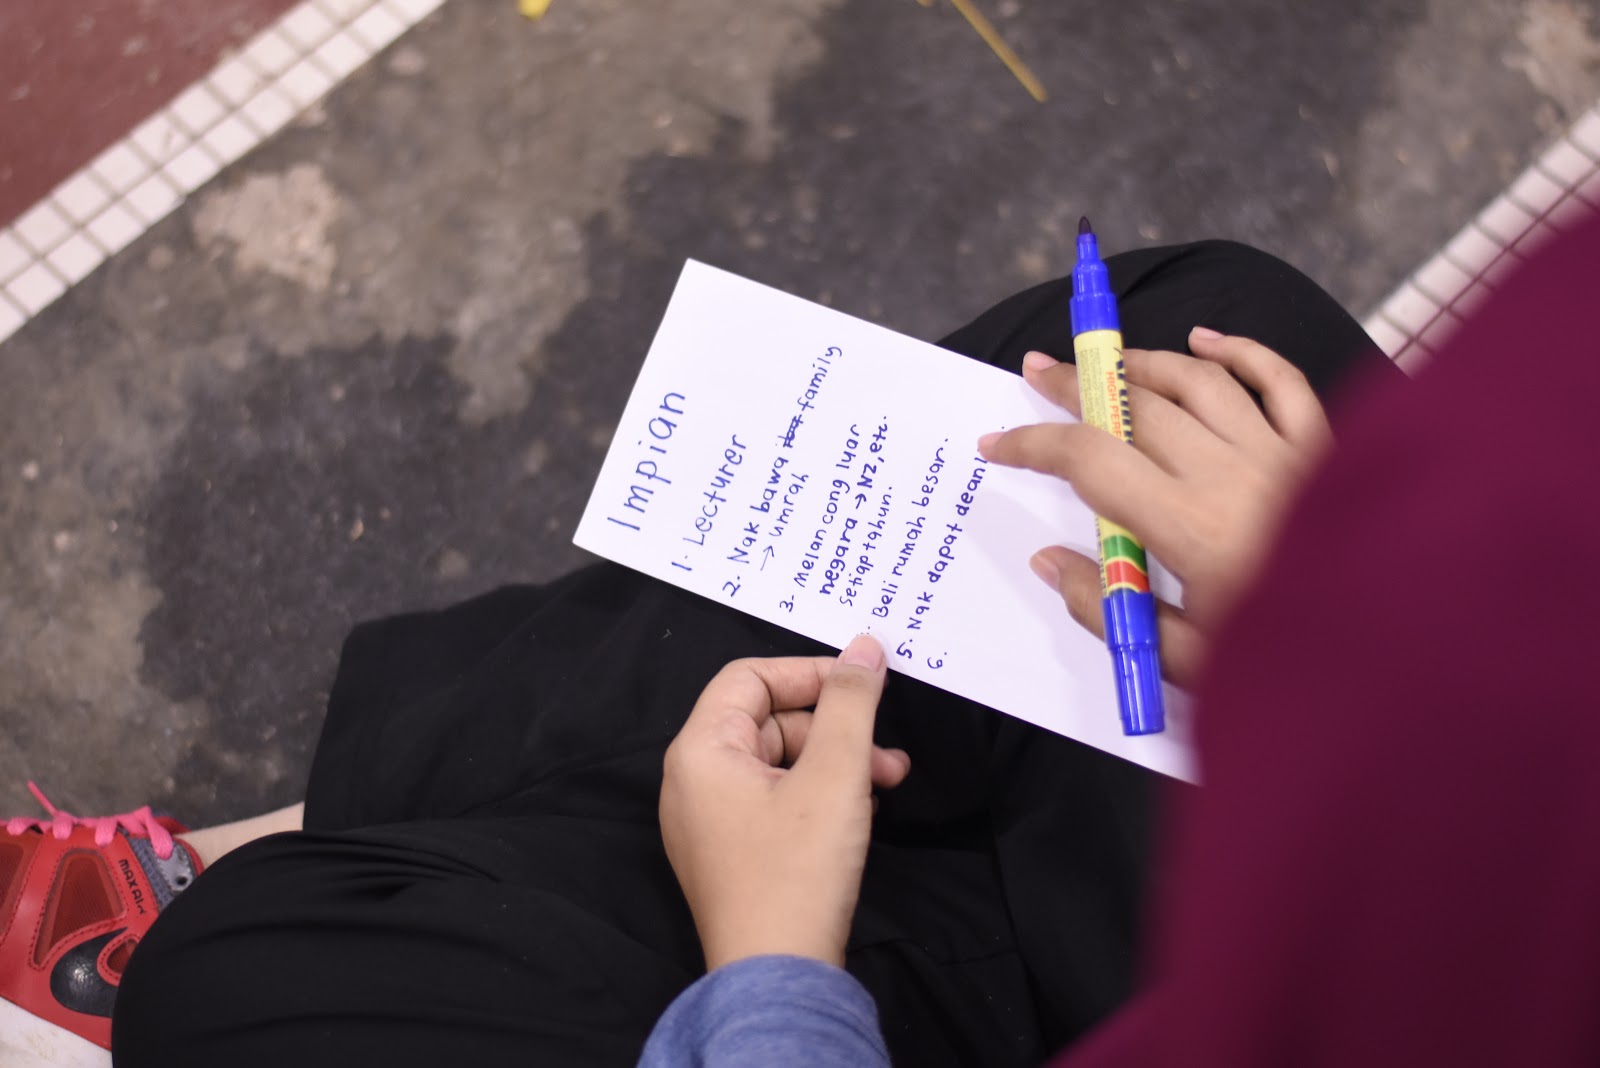 Impian
1. Lecturer
2. Nak bawa family
→ umrah
3. Melancong luar
negara → NZ, etc.
setiap tahun.
Beli rumah besar.
5. Nak dapat
6.
HIGH
MAX AIR